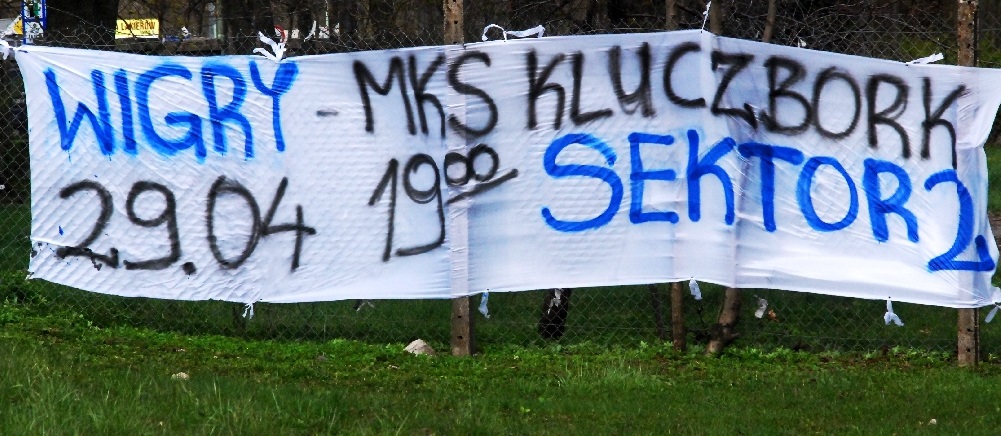 WIGRY - MKS KLUCZBORK
29.04 19⁰⁰ SEKTOR 2